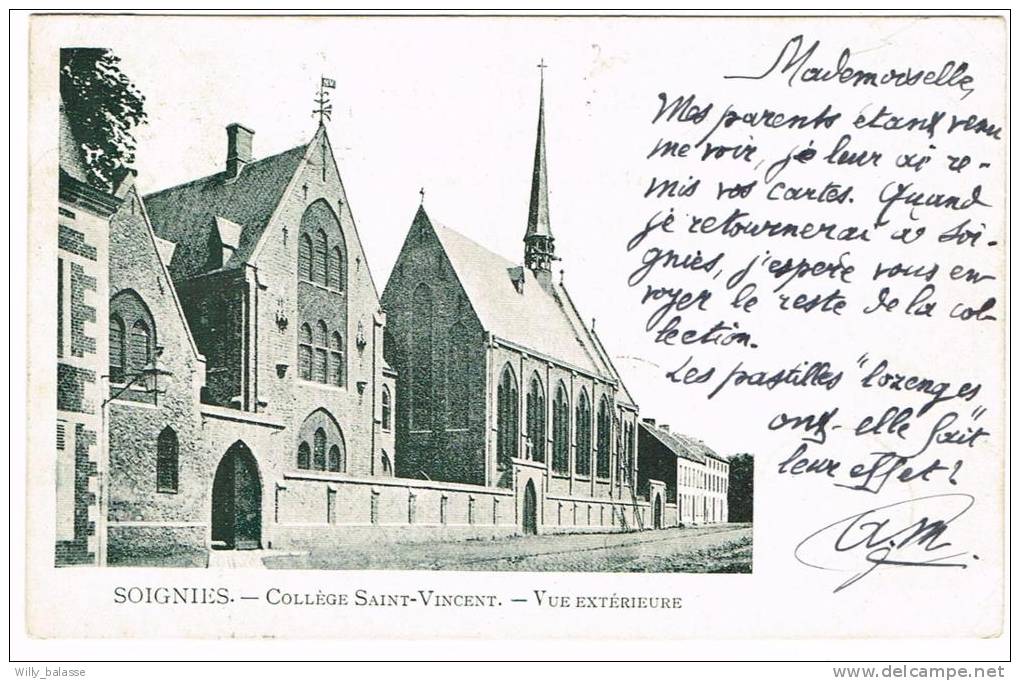 Mademoiselle,
Mes parents étant venu
me voir, je leur ai re-
mis vos cartes. Quand
je retournerai à Soi-
gnies, j'espère vous en-
voyer le reste de la col-
lection.
Les pastilles "lozenges"
ont-elle fait
leur effet?
A.M.
SOIGNIES. — COLLÈGE SAINT-VINCENT. — VUE EXTÉRIEURE
Willy_balasse
http://www.delcampe.net